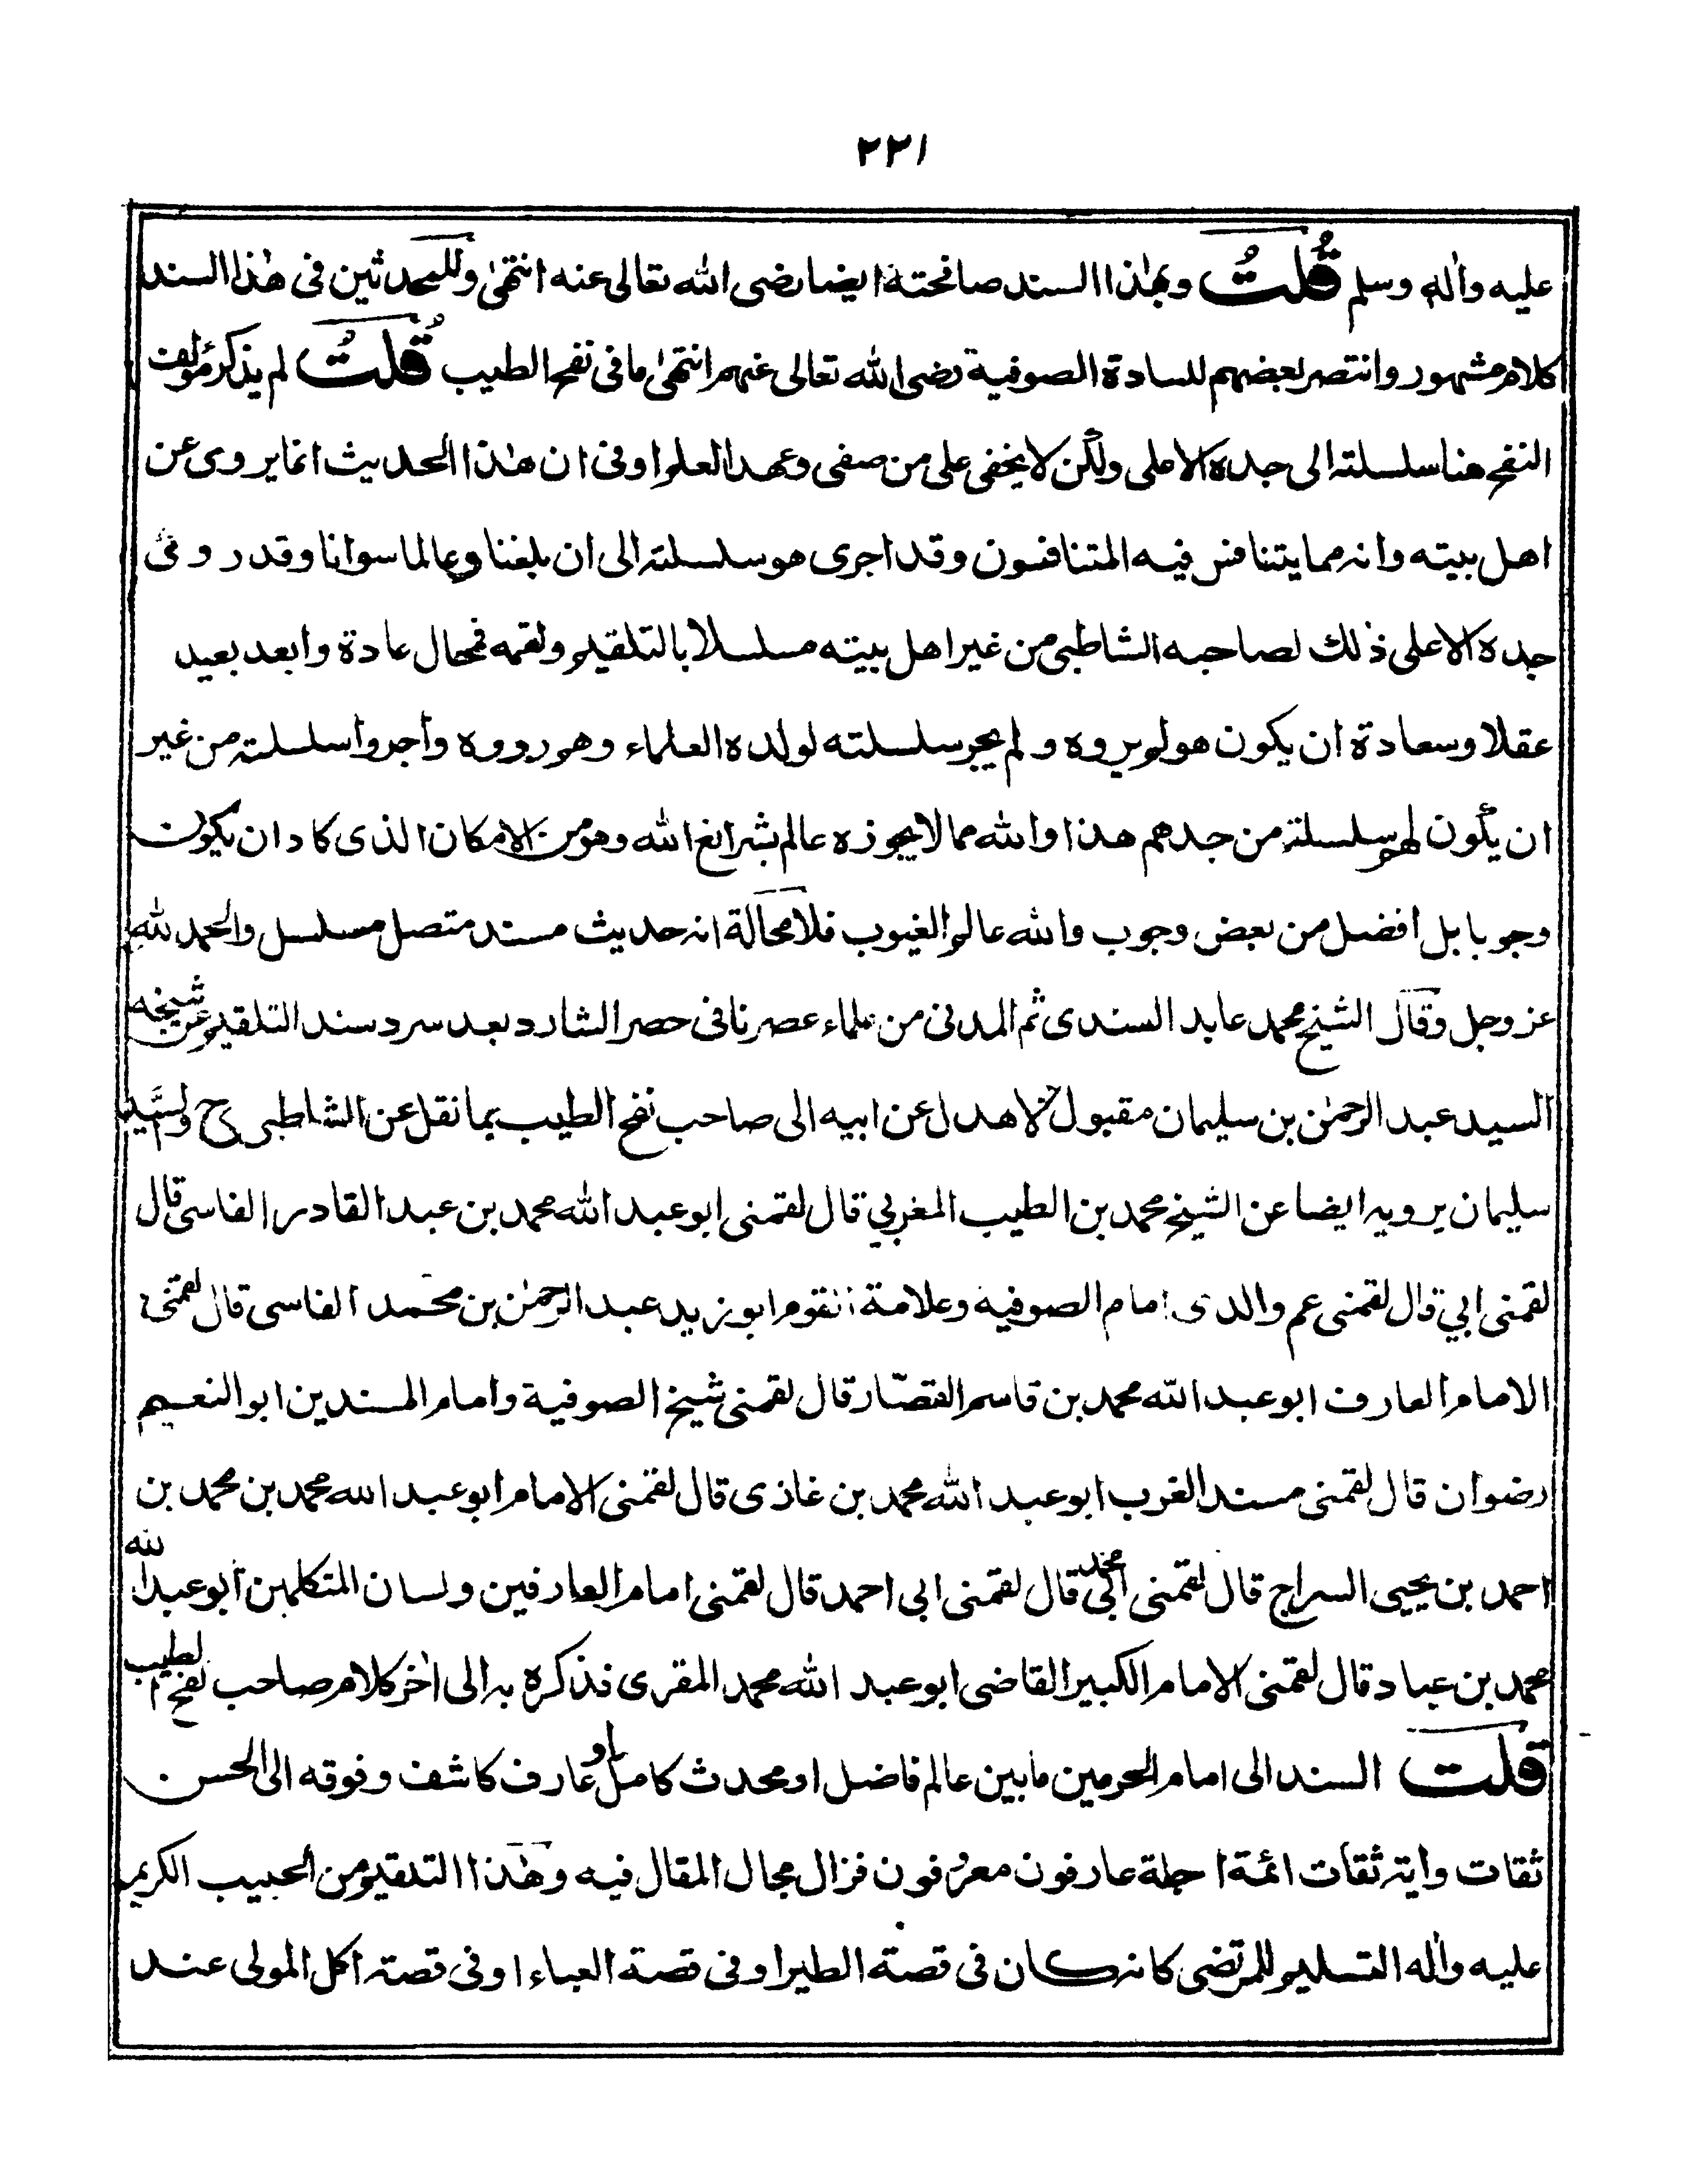 ٢٢١
عليه واٰلهٖ وسلم قُلتُ وبهٰذا السند صافحته ايضا رضى الله تعالى عنه انتهىٰ وللمحدثين فى هٰذا السند
كلام مشهور وانتصر بعضهم للسادة الصوفية رضى الله تعالى عنهم انتهىٰ ما فى نفح الطيب قُلتُ لم يذكر مؤلف
النفح هنا سلسلته الى جده الاعلى ولكن لا يخفى على من صفى وعهد العلم اوفى ان هٰذا الحديث انما يروى عن
اهل بيته وانه مما يتنافس فيه المتنافسون وقد اجرى هو سلسلته الى ان بلغنا وعالما سوانا وقد روى
جده الاعلى ذٰلك لصاحبه الشاطبى من غير اهل بيته مسلسلا بالتلقيم ولقمه فمحال عادة وابعد بعيد
عقلا وسعادة ان يكون هو لم يروه و لم يجر سلسلته لولده العلماء وهم رووه واجروا سلسلته من غير
ان يكون لهم سلسلة من جدهم هذا والله مما لا يجوزه عالم بشرائع الله وهو من الامكان الذى كاد ان يكون
وجوبا بل افضل من بعض وجوب والله عالم الغيوب فلا محالة انه حديث مسند متصل مسلسل والحمد لله
عز وجل وقال الشيخ محمد عابد السندى ثم المدنى من علماء عصرنا فى حصر الشارد بعد سرد سند التلقيم عن شيخه
السيد عبد الرحمٰن بن سليمان مقبول الاهدل عن ابيه الى صاحب نفح الطيب بما نقل عن الشاطبى ح والسيد
سليمان يرويه ايضا عن الشيخ محمد بن الطيب المغربي قال لقمنى ابو عبد الله محمد بن عبد القادر الفاسى قال
لقمنى ابي قال لقمنى عم والدى امام الصوفية وعلامة القوم ابو زيد عبد الرحمٰن بن محمد الفاسى قال لقمنى
الامام العارف ابو عبد الله محمد بن قاسم القصّار قال لقمنى شيخ الصوفية وامام المسندين ابو النعيم
رضوان قال لقمنى مسند الغرب ابو عبد الله محمد بن غازى قال لقمنى الامام ابو عبد الله محمد بن محمد بن
احمد بن يحيى السراج قال لقمنى ابى محمد قال لقمنى ابى احمد قال لقمنى امام العارفين ولسان المتكلمين ابو عبد الله
محمد بن عباد قال لقمنى الامام الكبير القاضى ابو عبد الله محمد المقرى فذكره به الى اٰخر كلام صاحب نفح الطيب
قلت السند الى امام الحرمين ما بين عالم فاضل او محدث كامل او عارف كاشف وفوقه الى الحسن
ثقات واية ثقات ائمة اجلة عارفون معروفون فزال مجال المقال فيه وهٰذا التلقيم من الحبيب الكريم
عليه واٰله التسليم للمرتضى كانه كان فى قصة الطير او فى قصة العباء او فى قصته اكل المولى عند